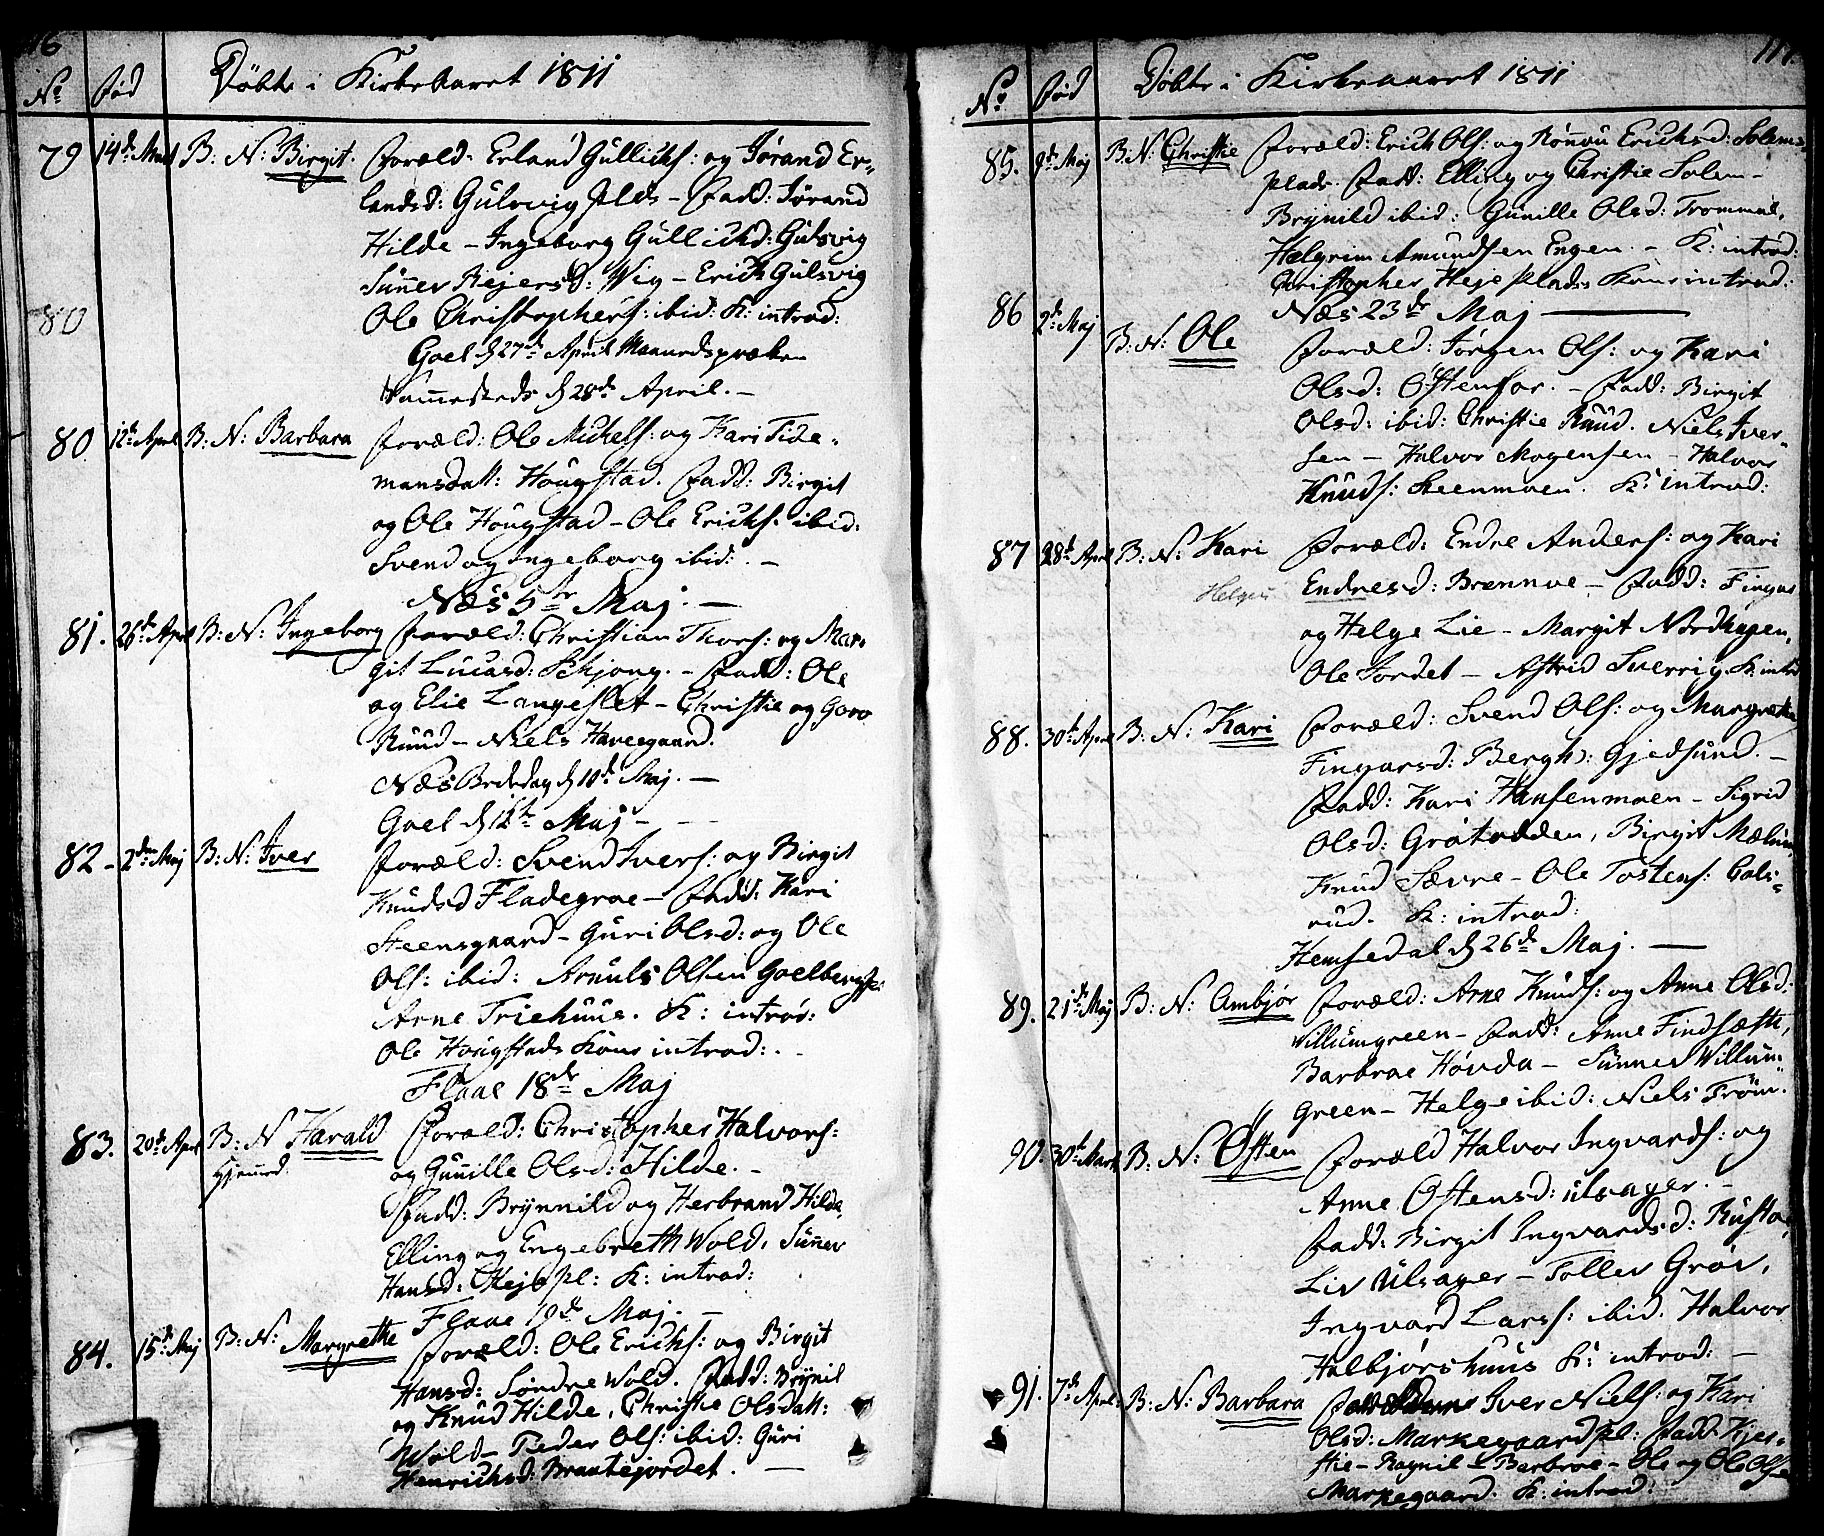 No Fød Døbte i Kirkeaaret 1811
79 14de Martz B: N: Birgit. Foræld: Erland Gullichs: og Jørand Er-
landsd: Gulsvig Plds - Fadd: Jørand
Hilde - Ingeborg Gullichsd: Gulsvig
Sünnev Rejersd: Wig - Erich Gulsvig
80 Ole Christophers: ibid: K: introd:
Goel d 27de April
d 28de April. -
80 12te April B: N: Barbara Foræld: Ole Michels: og Kari Tide-
mansdatt: Hougstad. Fadd: Birgit
og Ole Hougstad - Ole Erichs: ibid:
Svend og Ingeborg ibid: . -
Næs 5te Maj. -
81. 26de April B: N: Ingeborg Foræld: Christian Thors: og Mar-
git Lucasd: Schjong. - Fadd: Ole
og Elie Langeslet - Christie og Goro
Ruud - Niels Haveegaard.
Næs Bededag d 10de Maj. -
Goel d 12te Maj -
82 - 2den Maj B: N: Iver Foræld: Svend Ivers: og Birgit
Knudsd Fladegroe - Fadd: Kari
Steensgaard - Guri Olsd: og Ole
Ols: ibid: Olsen
Arne Triehuue. K: introd:
Ole Hougstads Kone introd: . -
Flaae 18de Maj
83. 20de April B: N Harald Foræld: Christopher Halvors:
Hjemmed. og Gunille Olsd: Hilde. -
Fadd: Brynnild og Herbrand Hilde,
Elling og Engebreth Wold, Sünnev
Hansd: Heje Pl: K: introd:
Flaae 19de Maj. -
84. 15de Maj B: N: Margrethe Foræld: Ole Erichs: og Birgit
Hansd: Søndre Wold. Fadd: Brynil
og Knud Hilde, Christie Olsdatt:
Wold - Peder Ols: ibid: Guri
Henrichsd: Braatejordet. -
117.
No Fød Døbte i Kirkeaaret 1811
85. Maj B: N: Christie Foræld: Erich Ols: og Rønnou Erichsd: Solems
Plads. Fadd: Elling og Christie Solem -
Brynild ibid: Gunille Olsd: Trommal,
Halgrim Amundsen Engen. - K: introd:
Christopher Heje Plads Kone introd:
Næs 23de Maj
86 2de Maj B: N: Ole Foræld: Jørgen Ols: og Kari
Olsd: Østenfor. - Fadd: Birgit
Olsd: ibid: Christie Ruud. Niels Iver-
sen - Halvor Mogensen - Halvor
Knuds: Steenmoen. K: introd:
87 28de April B: N: Kari Foræld: Endre Anders: og Kari
Helgesd Endresd: Brennoe - Fadd: Fingar
og Helge Lie - Margit Nordhagen,
Ole Jordet - Astrid Sverrig K: introd
88. 30de April B: N: Kari Foræld: Svend Ols: og Margrethe
Fingarsd: Bergh: Gjedsund. -
Fadd: Kari Hansenmoen - Sigrid
Olsd: Grøtodden, Birgit Mælum,
Knud Sævre - Ole Tostens: Gols-
rud. K: introd:
Hemsedal d 26de Maj. -
89. 21de Maj B: N: Ambjør Foræld: Arne Knuds: og Anne Olsd:
Villumgreen - Fadd: Anne Findsæth,
Barbroe Hovda - Sünnev Willum-
Green - Helge ibid: Niels Trøm.
90. 30te Martz B: N: Østen Foræld Halvor Ingvards: og
Anne Østensd: Ulsager. -
Fadd: Birgit Ingvardsd: Rustoe,
Liv Ulsager - Tollev Grøv,
Ingvard Lars: ibid: Halvor
Halbjørshuus K: introd: -
91. 7de April: B: N: Barbara Iver Niels: og Kari
Olsd: Markegaard Pl: Fadd: Kjer-
stie - Ragnil - Barbroe - Ole og Ole Ols:
Markegaard. K: introd: